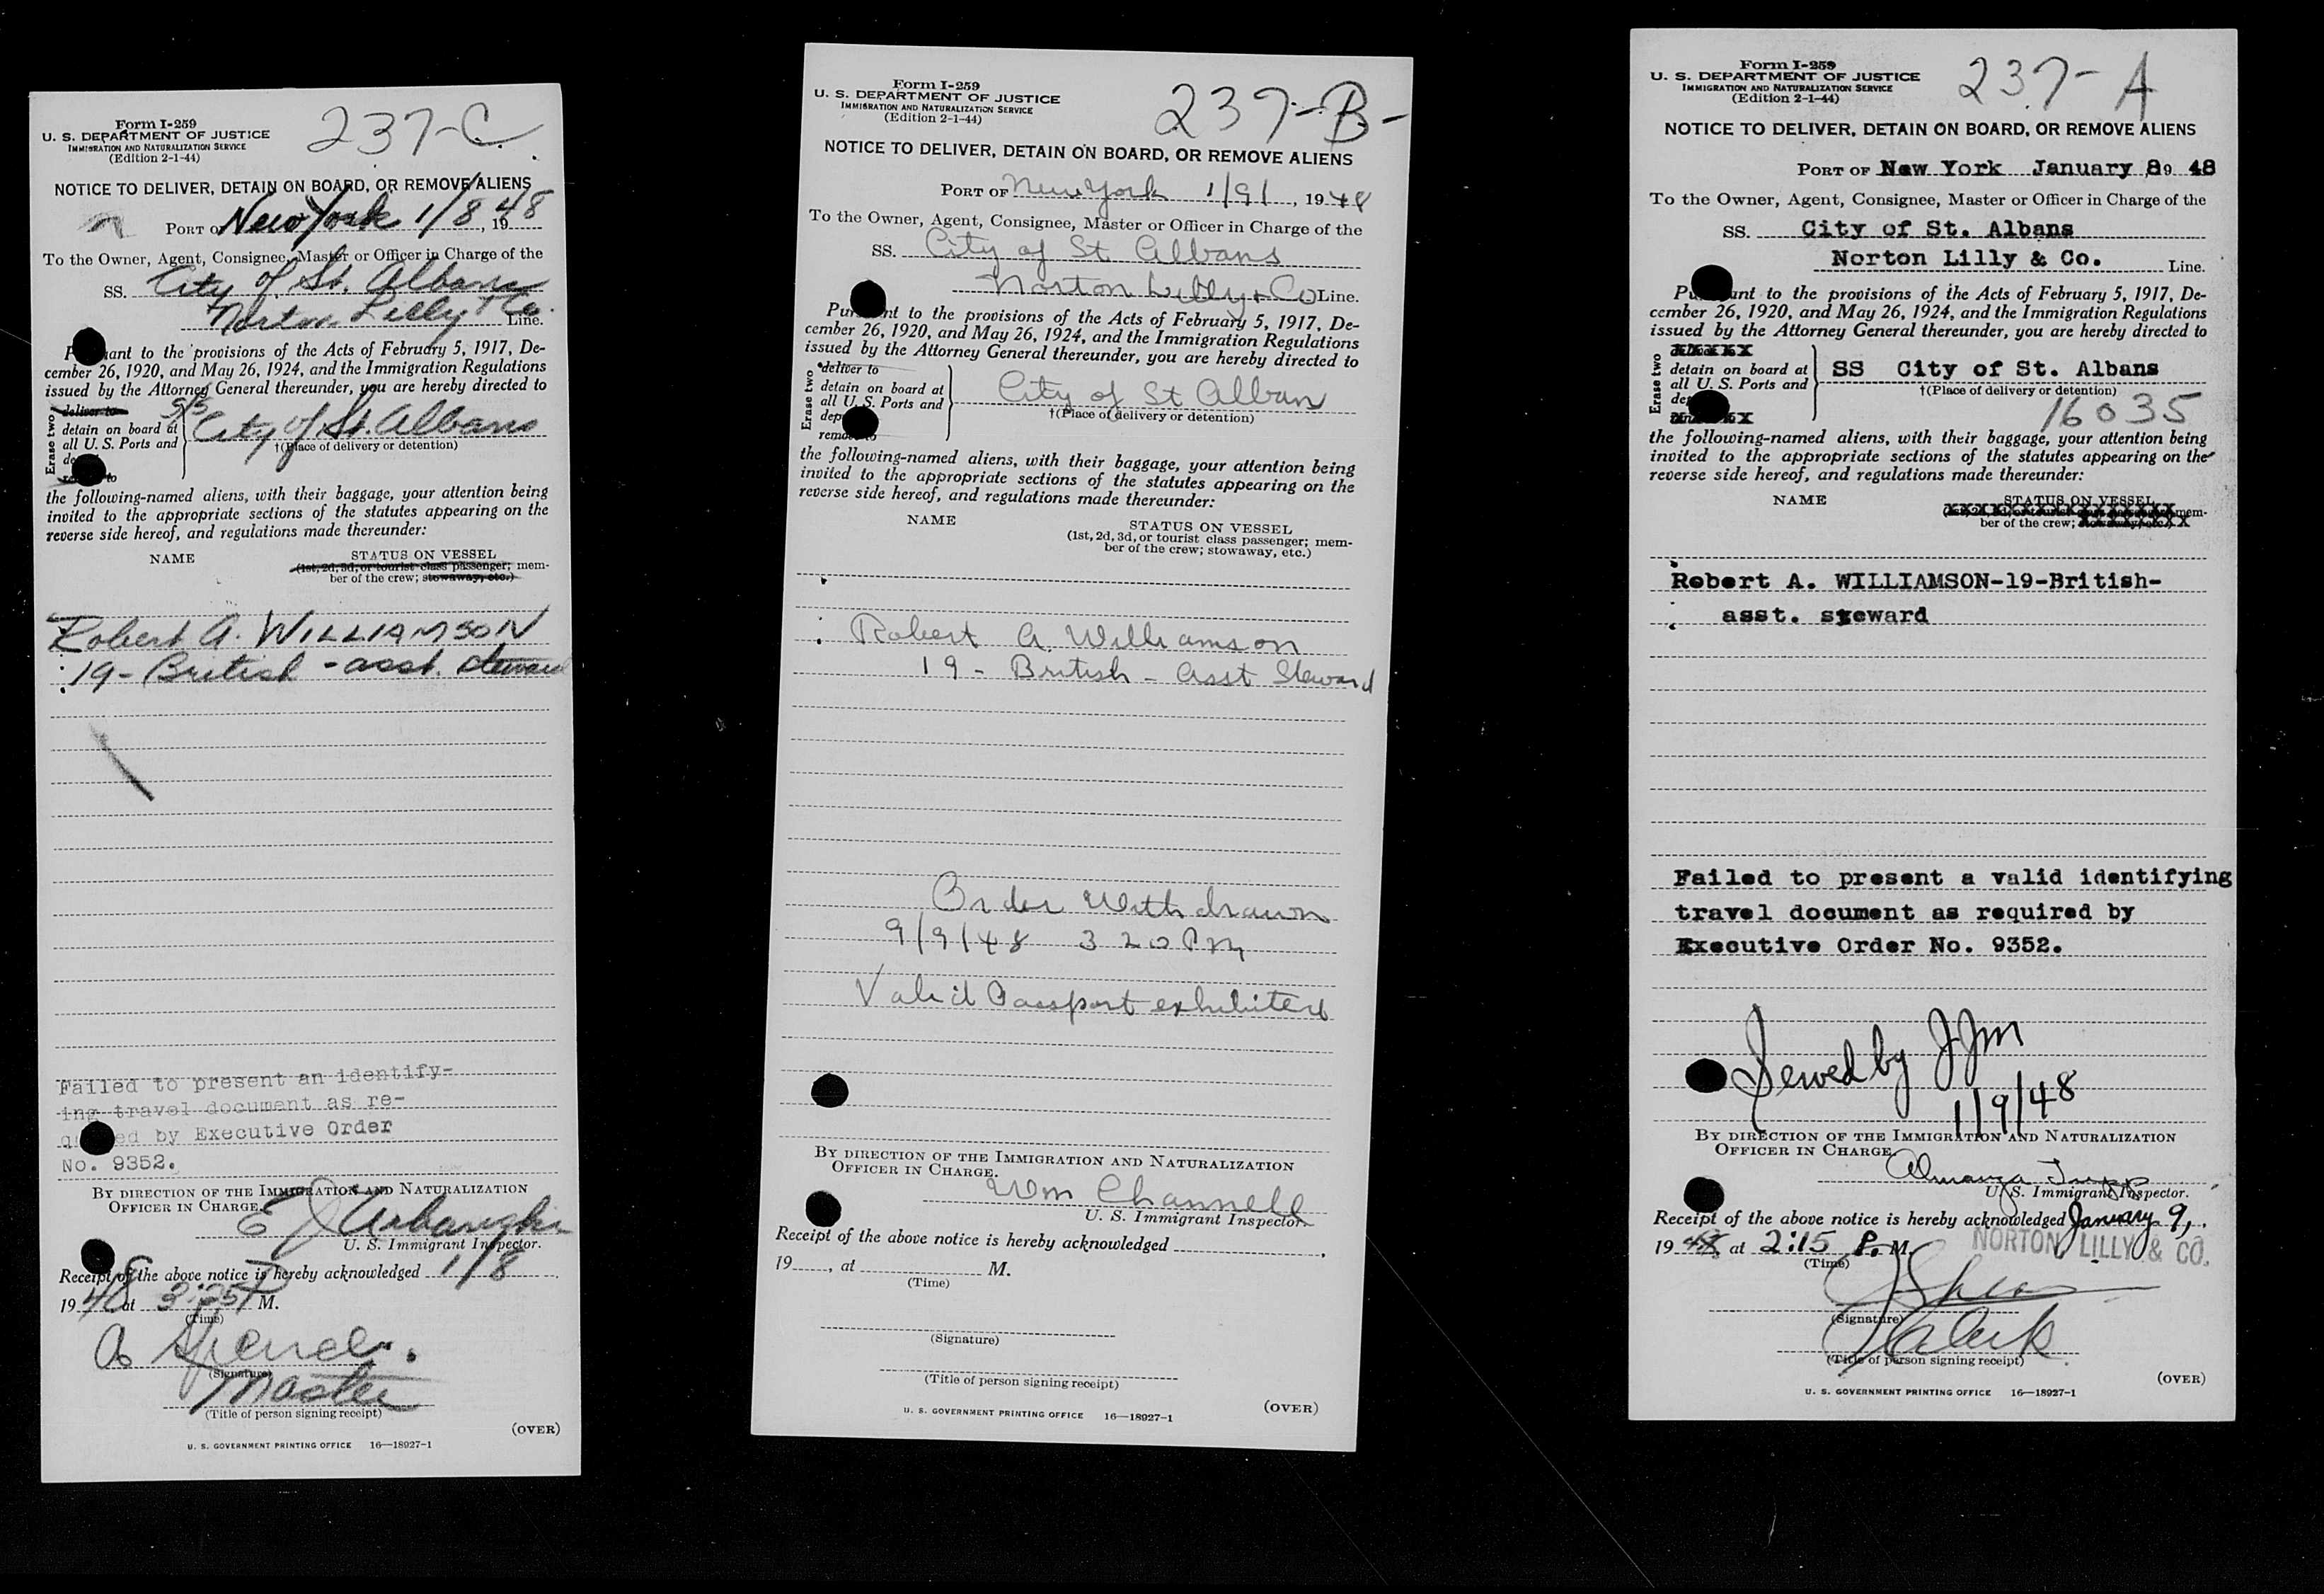 237-C
Form I-259
U. S. DEPARTMENT OF JUSTICE
IMMIGRATION AND NATURALIZATION SERVICE
(Edition 2-1-44)
NOTICE TO DELIVER, DETAIN ON BOARD, OR REMOVE ALIENS
PORT OF New York 1/8, 1948
To the Owner, Agent, Consignee, Master or Officer in Charge of the
SS. City of St. Albans
Norton Lilly & Co. Line.
Pursuant to the provisions of the Acts of February 5, 1917, De-
cember 26, 1920, and May 26, 1924, and the Immigration Regulations
issued by the Attorney General thereunder, you are hereby directed to
Erase two
deliver to
detain on board at
all U. S. Ports and
S/S City of St. Albans
†(Place of delivery or detention)
the following-named aliens, with their baggage, your attention being
invited to the appropriate sections of the statutes appearing on the
reverse side hereof, and regulations made thereunder:
NAME STATUS ON VESSEL
(1st, 2d, 3d, or tourist class passenger; mem-
ber of the crew; stowaway, etc.)
Robert A. WILLIAMSON
19 - British - asst. steward
Failed to present an identify-
ing travel document as re-
quired by Executive Order
No. 9352.
BY DIRECTION OF THE IMMIGRATION AND NATURALIZATION
OFFICER IN CHARGE.
E J
U. S. Immigrant Inspector.
Receipt of the above notice is hereby acknowledged 1/8
1948 at 3:25 P M.
(Time)
A.
(Signature)
Master
(Title of person signing receipt)
(OVER)
U. S. GOVERNMENT PRINTING OFFICE 16—18927-1
237-B-
Form I-259
U. S. DEPARTMENT OF JUSTICE
IMMIGRATION AND NATURALIZATION SERVICE
(Edition 2-1-44)
NOTICE TO DELIVER, DETAIN ON BOARD, OR REMOVE ALIENS
PORT OF New York 1/9/, 1948
To the Owner, Agent, Consignee, Master or Officer in Charge of the
SS. City of St Albans
Norton Lilly & Co Line.
Pursuant to the provisions of the Acts of February 5, 1917, De-
cember 26, 1920, and May 26, 1924, and the Immigration Regulations
issued by the Attorney General thereunder, you are hereby directed to
Erase two
deliver to
detain on board at
all U. S. Ports and
remove to
City of St Alban
†(Place of delivery or detention)
the following-named aliens, with their baggage, your attention being
invited to the appropriate sections of the statutes appearing on the
reverse side hereof, and regulations made thereunder:
NAME STATUS ON VESSEL
(1st, 2d, 3d, or tourist class passenger; mem-
ber of the crew; stowaway, etc.)
Robert A. Williamson
19 - British - Asst Steward
Order Withdrawn
9/9/48 3 20 PM
Valid Passport exhibited
BY DIRECTION OF THE IMMIGRATION AND NATURALIZATION
OFFICER IN CHARGE.
Wm Channell
U. S. Immigrant Inspector.
Receipt of the above notice is hereby acknowledged
19, at M.
(Time)
(Signature)
(Title of person signing receipt)
(OVER)
U. S. GOVERNMENT PRINTING OFFICE 16—18927-1
237-A
Form I-259
U. S. DEPARTMENT OF JUSTICE
IMMIGRATION AND NATURALIZATION SERVICE
(Edition 2-1-44)
NOTICE TO DELIVER, DETAIN ON BOARD, OR REMOVE ALIENS
PORT OF New York January 8 9 48
To the Owner, Agent, Consignee, Master or Officer in Charge of the
SS. City of St. Albans
Norton Lilly & Co. Line.
Pursuant to the provisions of the Acts of February 5, 1917, De-
cember 26, 1920, and May 26, 1924, and the Immigration Regulations
issued by the Attorney General thereunder, you are hereby directed to
Erase two
detain on board at
all U. S. Ports and
SS City of St. Albans
†(Place of delivery or detention)
16035
the following-named aliens, with their baggage, your attention being
invited to the appropriate sections of the statutes appearing on the
reverse side hereof, and regulations made thereunder:
NAME STATUS ON VESSEL
mem-
ber of the crew;
Robert A. WILLIAMSON-19-British-
asst. steward
Failed to present a valid identifying
travel document as required by
Executive Order No. 9352.
Served by JJM
1/9/48
BY DIRECTION OF THE IMMIGRATION AND NATURALIZATION
OFFICER IN CHARGE.
U. S. Immigrant Inspector.
Receipt of the above notice is hereby acknowledged January 9,
1948 at 2:15 P. M.
(Time)
NORTON, LILLY & CO.
(Signature)
Clerk
(Title of person signing receipt)
(OVER)
U. S. GOVERNMENT PRINTING OFFICE 16—18927-1